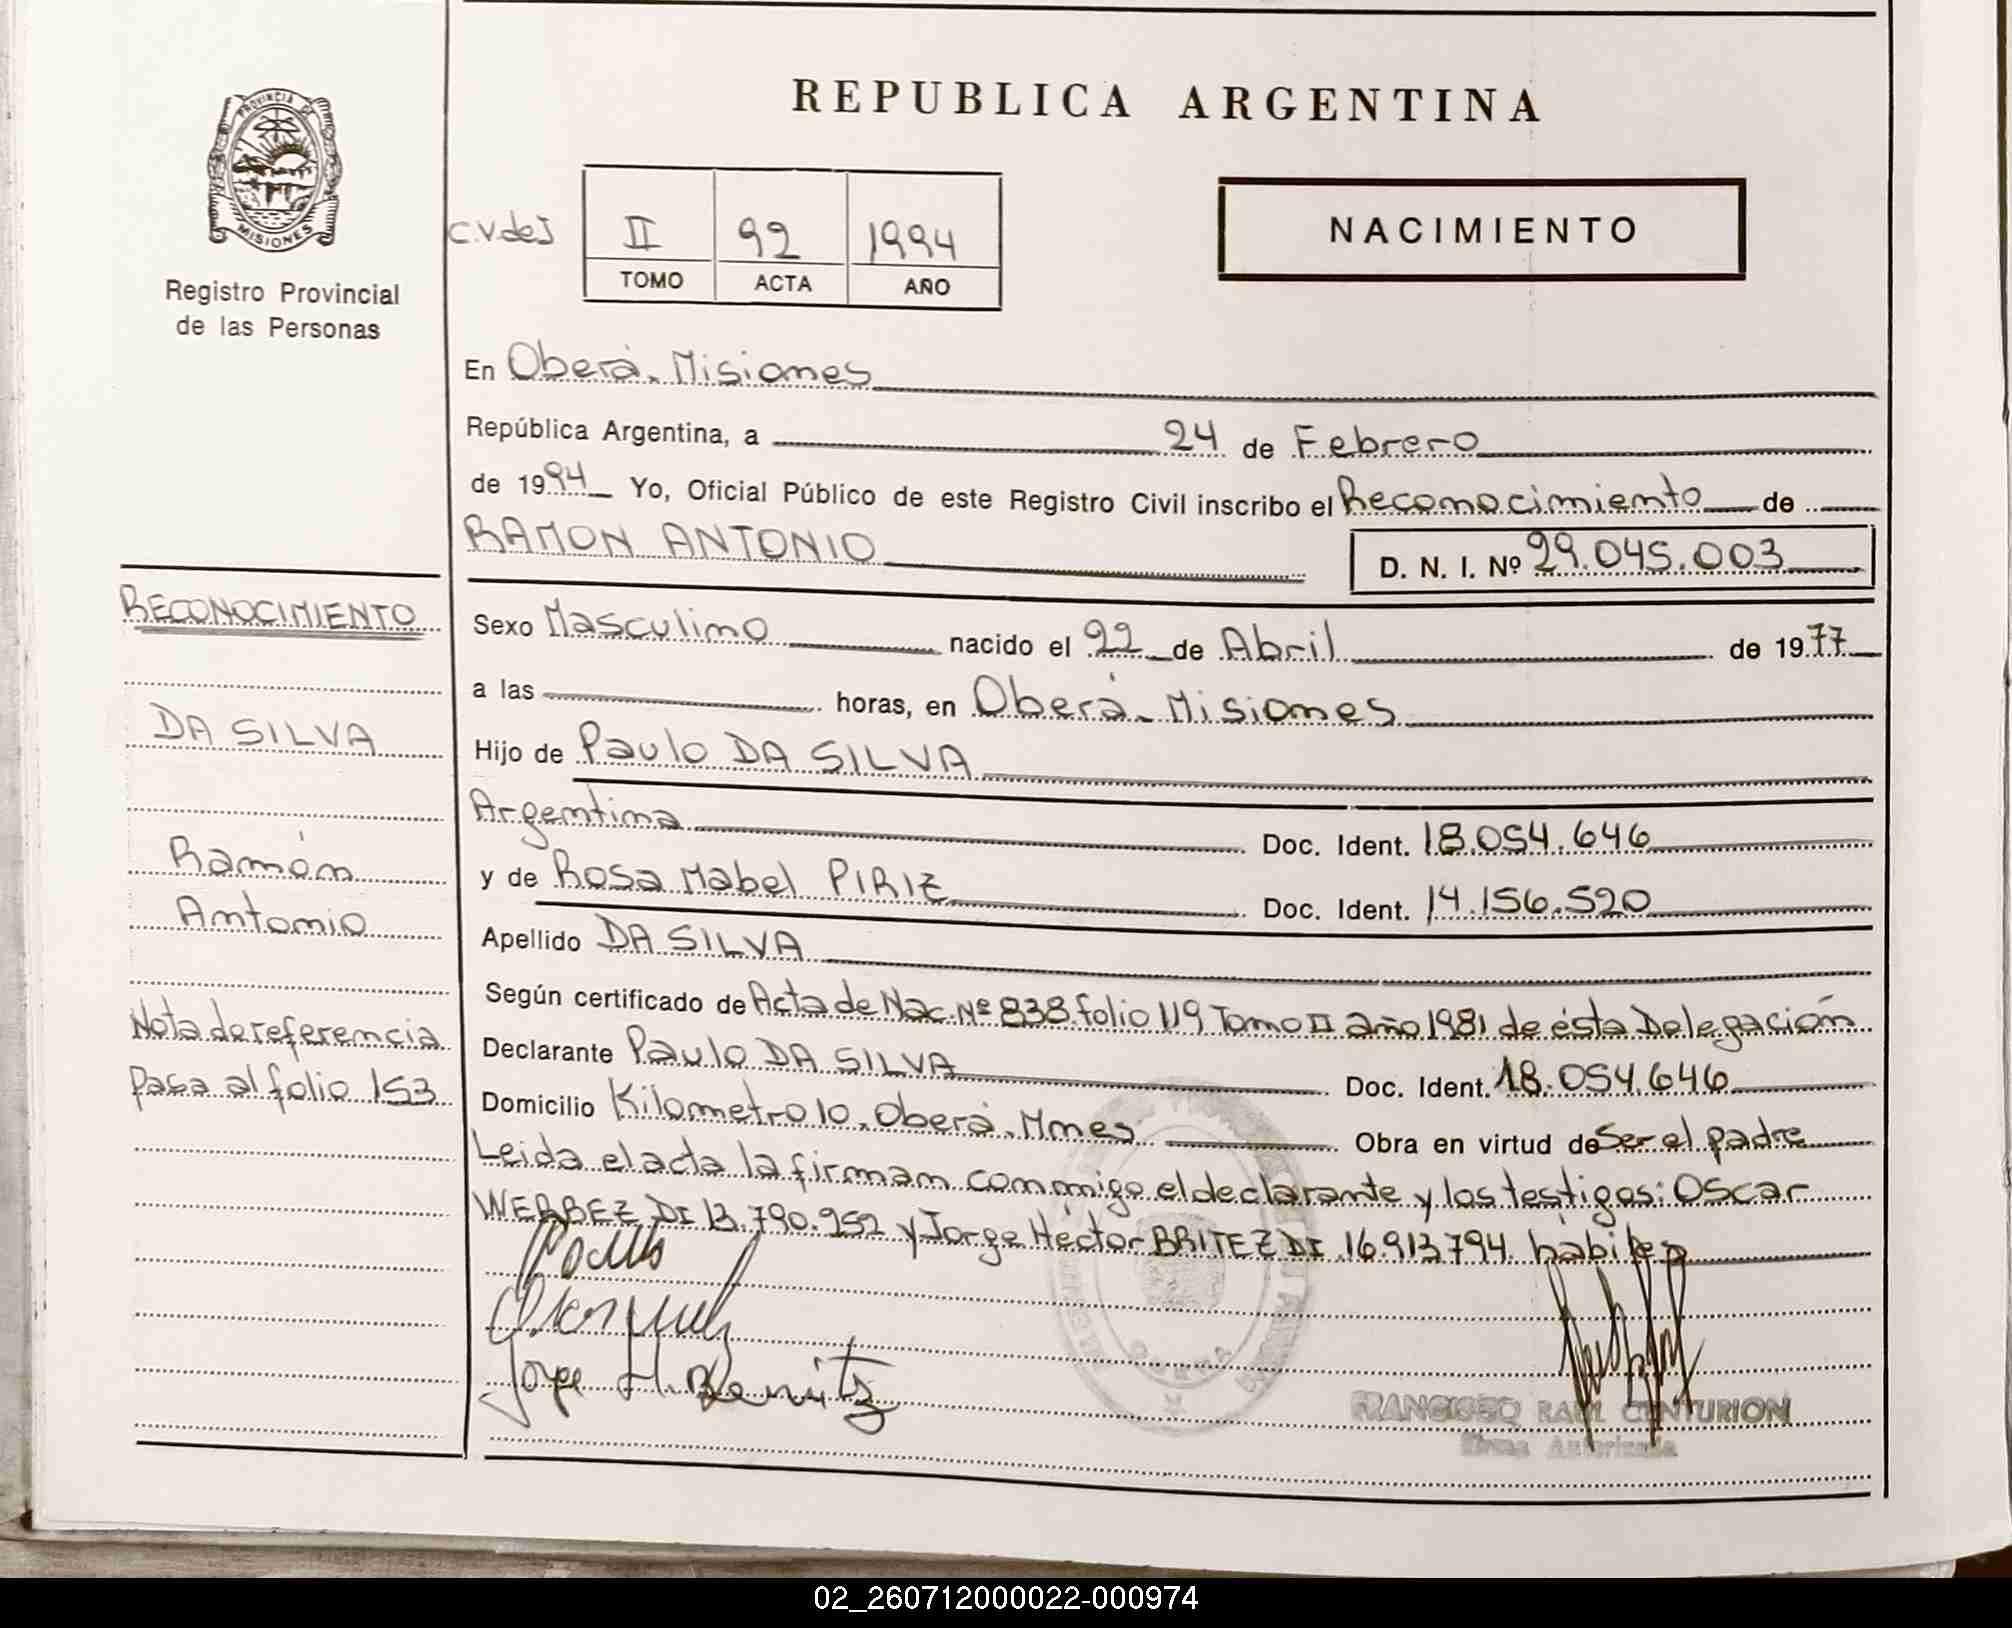 REPUBLICA ARGENTINA
PROVINCIA DE
MISIONES
Registro Provincial
de las Personas
C.V.deJ
II 92 1994
TOMO ACTA AÑO
NACIMIENTO
En Oberá. Misiones
República Argentina, a 24 de Febrero
de 1994 Yo, Oficial Público de este Registro Civil inscribo el Reconocimiento de
RAMON ANTONIO
D. N. I. Nº 29.045.003
Sexo Masculino nacido el 22 de Abril de 1977
a las horas, en Oberá. Misiones
Hijo de Paulo DA SILVA
Argentina Doc. Ident. 18.054.646
y de Rosa Mabel PIRIZ Doc. Ident. 14.156.520
Apellido DA SILVA
Según certificado de Acta de Nac. Nº 838. folio 119 Tomo II año 1981 de ésta Delegación
Declarante Paulo DA SILVA Doc. Ident. 18.054.646
Domicilio Kilometro 10. Oberá. Mnes Obra en virtud de Ser el padre
Leida el acta la firman conmigo el declarante y los testigos: Oscar
WERBEZ DI 13.790.952 y Jorge Héctor BRITEZ DI 16.913.794. hábiles
Jorge H.
FRANCISCO RAUL CENTURION
Firma Autorizada
RECONOCIMIENTO
DA SILVA
Ramón
Antonio
Nota de referencia
pasa al folio 153
02_260712000022-000974